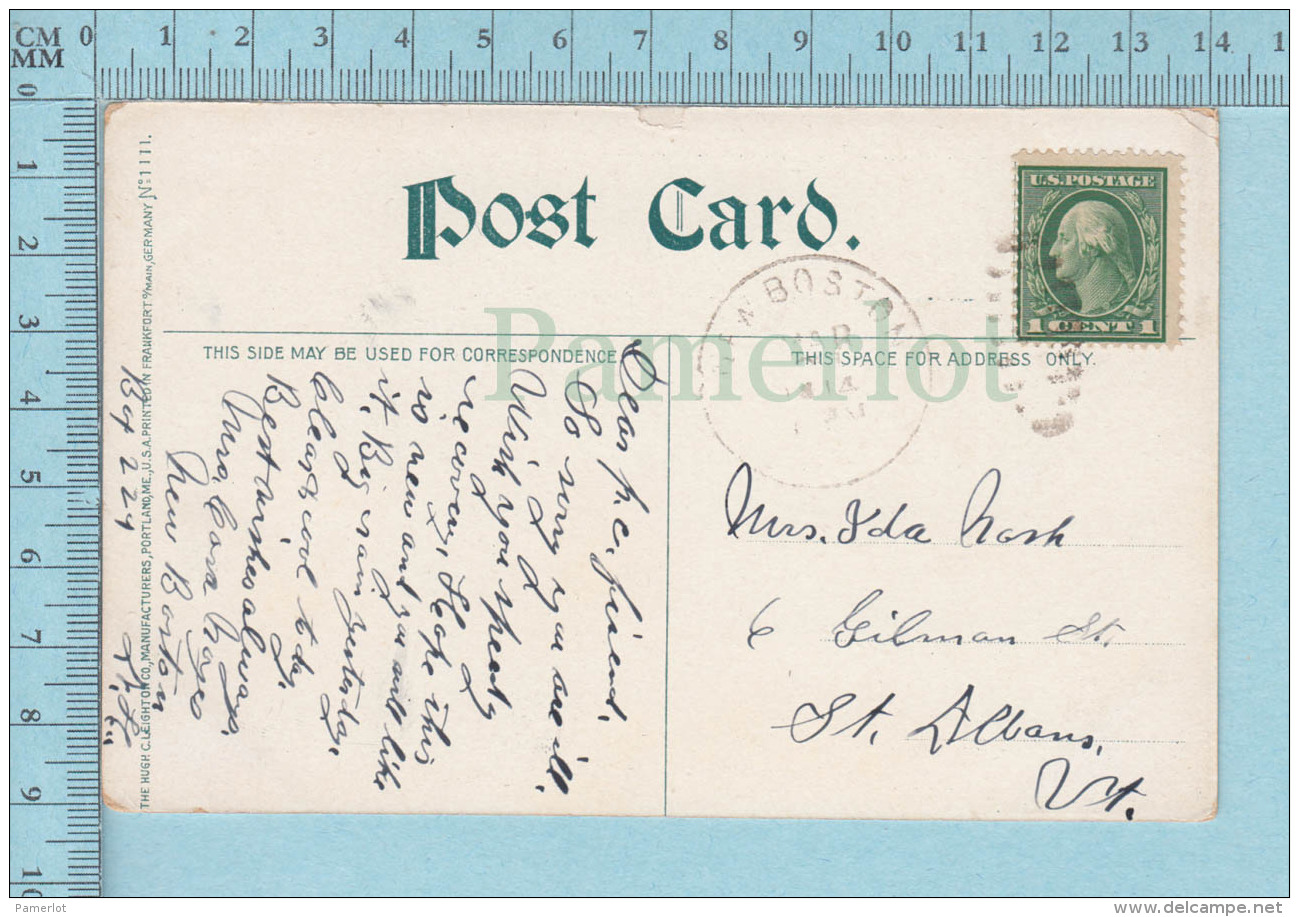 CM 0 1 2 3 4 5 6 7 8 9 10 11 12 13 14 1
MM
0 1 2 3 4 5 6 7 8 9 10
Post Card.
U.S. POSTAGE
1 CENT 1
NEW BOSTON
MAR
14
Pamerlot
THIS SIDE MAY BE USED FOR CORRESPONDENCE
THIS SPACE FOR ADDRESS ONLY.
THE HUGH C. LEIGHTON CO., MANUFACTURERS, PORTLAND, ME., U.S.A. PRINTED IN FRANKFORT o/MAIN, GERMANY No 1111.
Dear p. c. friend,
So sorry you are ill.
Wish you speedy
recovery. Hope this
is new and you will like
it. Big rain yesterday,
clear & cool to day.
Best wishes always.
Mrs. Cora
New Boston
Bx 224 N. H.
Mrs. Ida Nash
6 Gilman St.
St. Albans,
Vt.
Pamerlot
delcampe.net